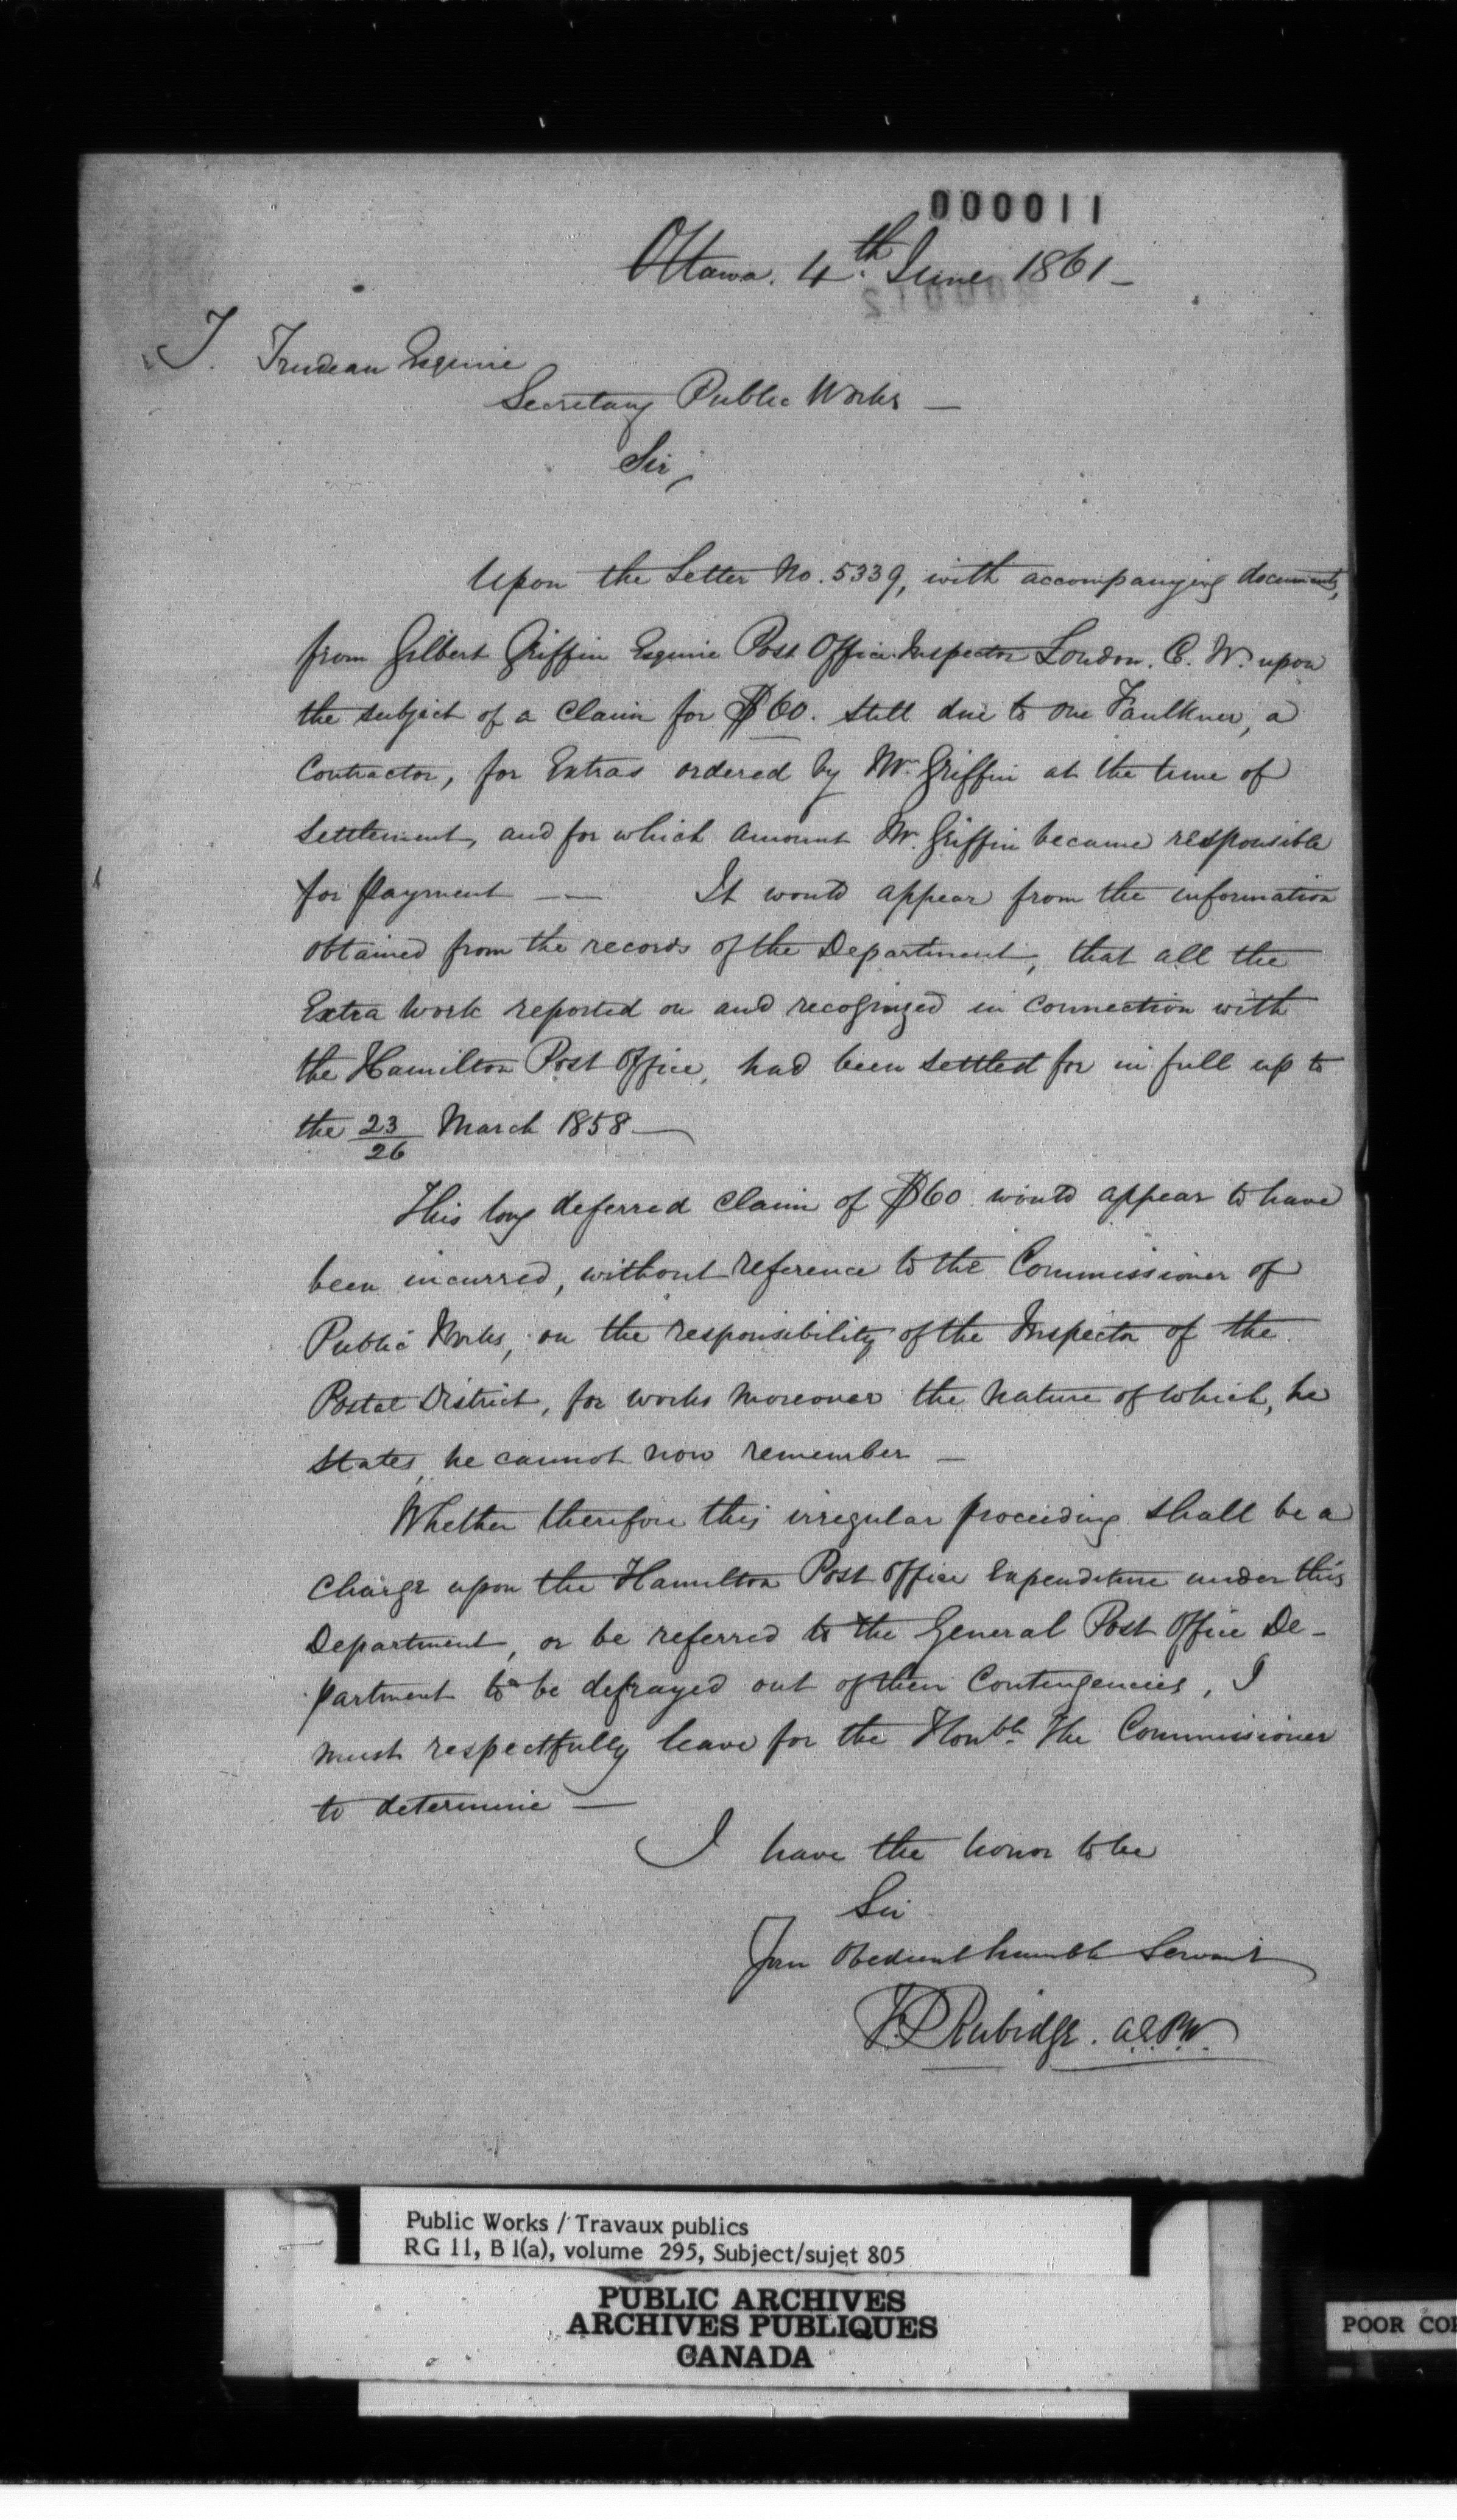 000011
Ottawa. 4th. June 1861 -
T. Trudeau Esquire
Secretary Public Works -
Sir,
Upon the Letter No. 5339, with accompanying documents,
from Gilbert Griffin Esquire Post Office Inspector London. C. W. upon
the subject of a Claim for $60. still due to one Faulkner, a
Contractor, for Extras ordered by Mr. Griffin at the time of
Settlement, and for which amount Mr. Griffin became responsible
for payment -- It would appear from the information
obtained from the records of the Department, that all the
Extra work reported on and recognized in connection with
the Hamilton Post Office, had been settled for in full up to
the 23/26 March 1858 -
This long deferred Claim of $60 would appear to have
been incurred, without reference to the Commissioner of
Public Works, on the responsibility of the Inspector of the
Postal District, for works moreover the nature of which, he
states, he cannot now remember -
Whether therefore this irregular proceeding shall be a
Charge upon the Hamilton Post Office Expenditure under this
Department, or be referred to the General Post Office De-
partment to be defrayed out of their Contingencies, I
must respectfully leave for the Honble. The Commissioner
to determine -
I have the honor to be
Sir
Your Obedient humble Servant
F.P. Rubidge. A.E.P.W.
Public Works / Travaux publics
RG 11, B 1(a), volume 295, Subject/sujet 805
PUBLIC ARCHIVES
ARCHIVES PUBLIQUES
CANADA
POOR COP